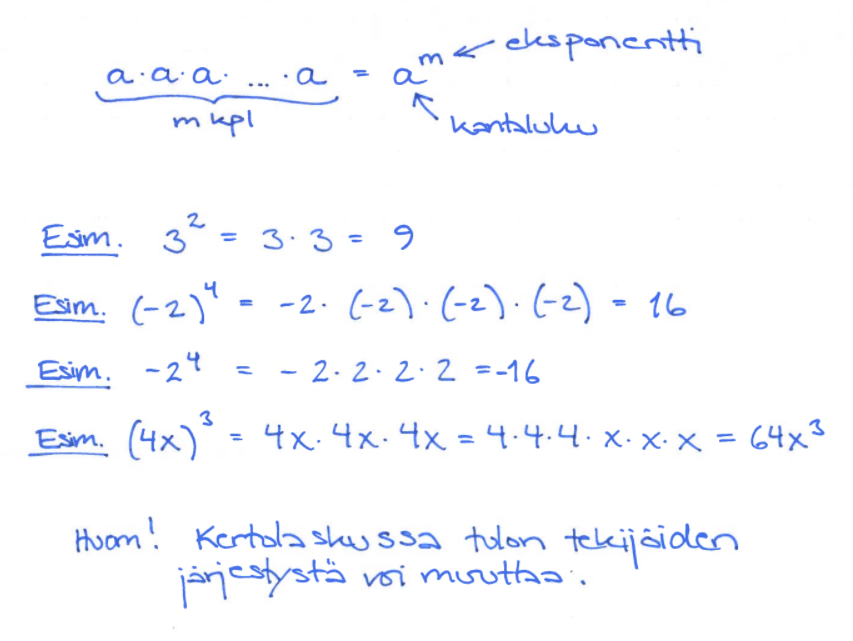 a·a·a· ... ·a = a^m ← eksponentti
m kpl
kantaluku
Esim. 3² = 3·3 = 9
Esim. (-2)⁴ = -2·(-2)·(-2)·(-2) = 16
Esim. -2⁴ = -2·2·2·2 = -16
Esim. (4x)³ = 4x·4x·4x = 4·4·4·x·x·x = 64x³
Huom! Kertolaskussa tulon tekijöiden
järjestystä voi muuttaa.